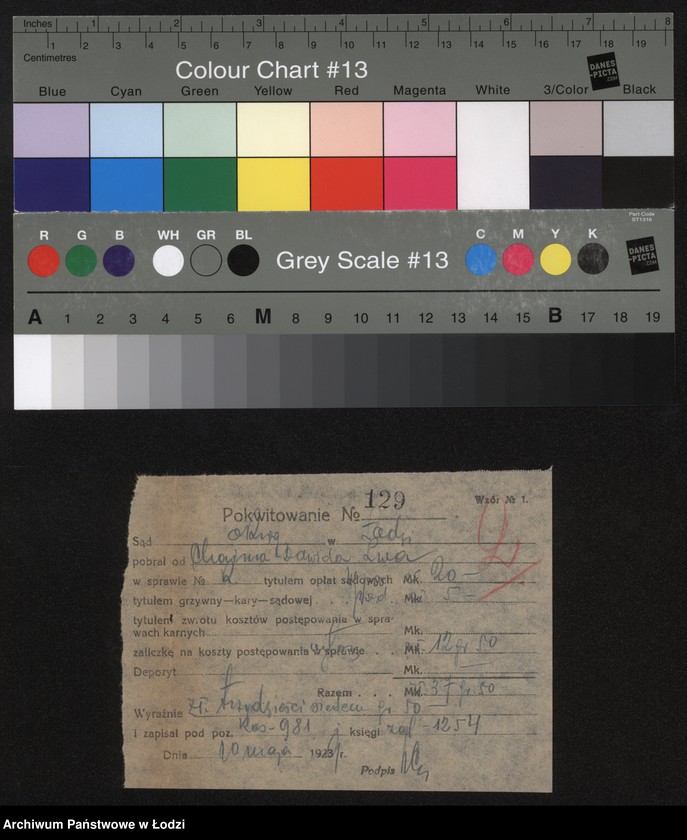 Inches 1 2 3 4 5 6 7 8
1 2 3 4 5 6 7 8 9 10 11 12 13 14 15 16 17 18 19
Centimetres
Colour Chart #13
DANES-PICTA.COM
Blue Cyan Green Yellow Red Magenta White 3/Color Black
Part Code
ST1316
R G B WH GR BL Grey Scale #13 C M Y K
DANES-PICTA.COM
A 1 2 3 4 5 6 M 8 9 10 11 12 13 14 15 B 17 18 19
Wzór № 1.
Pokwitowanie № 129
Sąd w Łodzi
pobrał od Chajma Dawida
w sprawie № tytułem opłat sądowych Mk. 20 -
tytułem grzywny—kary—sądowej . . . Mk. 5 -
tytułem zwrotu kosztów postępowania w spra-
wach karnych Mk.
zaliczkę na koszty postępowania w sprawie . . Mk. 12 gr 50
Depozyt Mk.
Razem . . . Mk. 37 gr. 50
Wyraźnie Zł. trzydzieści siedem gr 50
i zapisał pod poz. Kas-981 księgi 1254
Dnia 10 maja 1923 r.
Podpis
Archiwum Państwowe w Łodzi